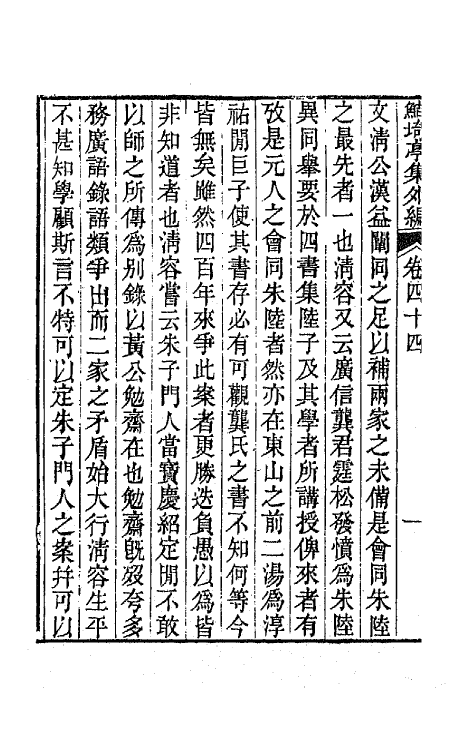 鮚埼亭集外編 卷四十四 一
文淸公漢益闡同之足以補兩家之未備是會同朱陸
之最先者一也淸容又云廣信龔君霆松發憤爲朱陸
異同舉要於四書集陸子及其學者所講授俾來者有
攷是元人之會同朱陸者然亦在東山之前二湯爲淳
祐閒巨子使其書存必有可觀龔氏之書不知何等今
皆無矣雖然四百年來爭此案者更勝迭負愚以爲皆
非知道者也淸容嘗云朱子門人當寶慶紹定閒不敢
以師之所傳爲別錄以黃公勉齋在也勉齋旣歿夸多
務廣語錄語類爭出而二家之矛盾始大行淸容生平
不甚知學顧斯言不特可以定朱子門人之案幷可以